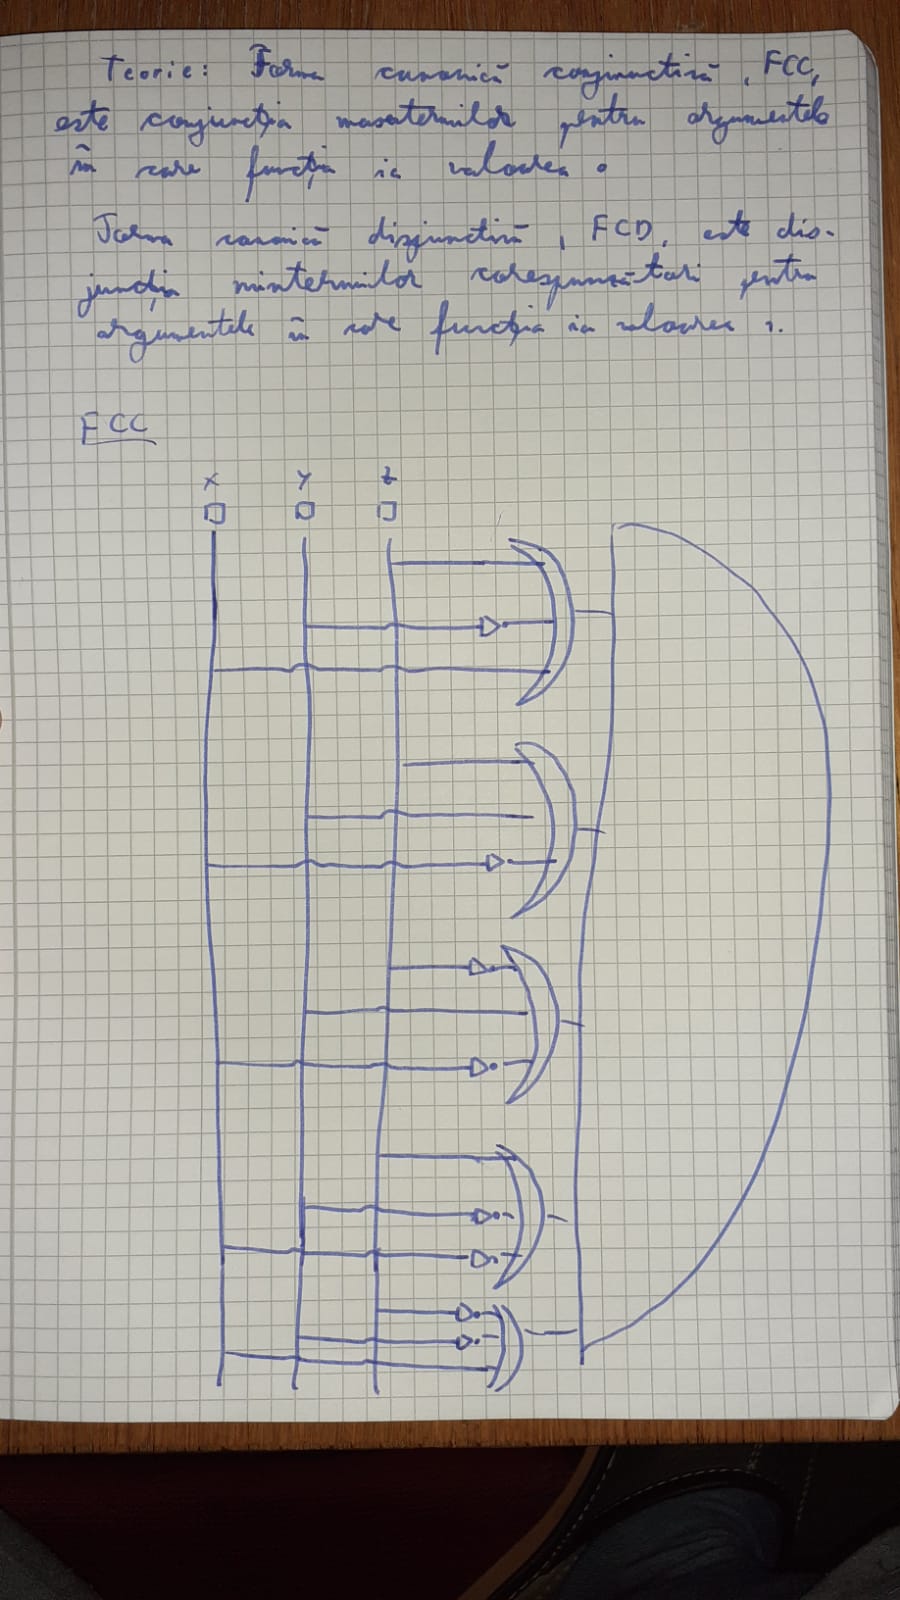 Teorie: Forma canonică conjunctivă, FCC,
este conjuncția maxtermilor pentru argumentele
în care funcția ia valoarea 0
Forma canonică disjunctivă, FCD, este dis-
juncția mintermilor corespunzători pentru
argumentele în care funcția ia valoarea 1.
FCC
x y z